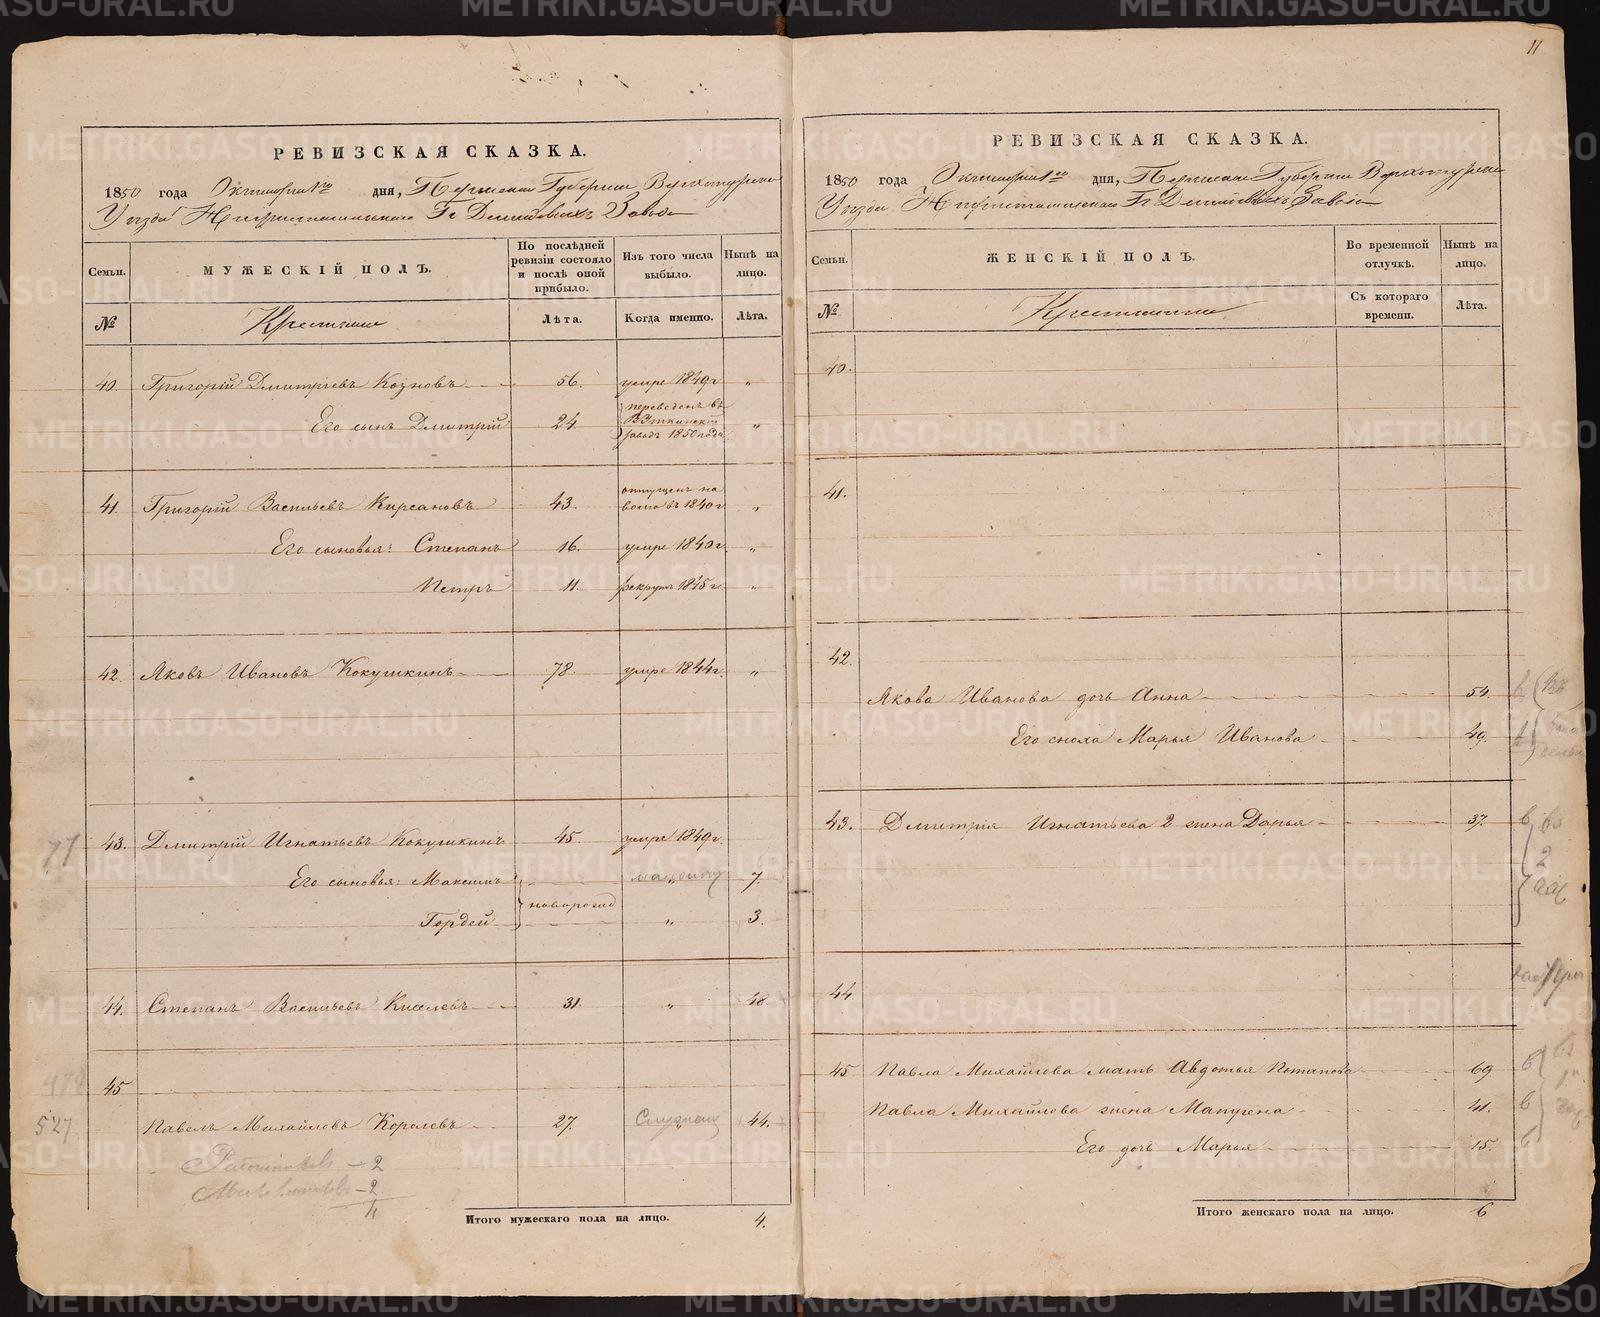 11
РЕВИЗСКАЯ СКАЗКА.
1850 года Октября 1го дня, Пермской Губернии Верхотурскаго
Уезда Нижнетагильскаго Гг Демидовыхъ Завода
Семьи.
МУЖЕСКІЙ ПОЛЪ.
По последней ревизіи состояло и послѣ оной прибыло.
Изъ того числа выбыло.
Нынѣ на лицо.
№
Крестьяне
Лѣта.
Когда именно.
Лѣта.
40. Григорій Дмитріевъ Козновъ 56. умре 1849г "
Его сынъ Дмитрій 24. переведенъ въ заводъ 1850 года "
41. Григорій Васильевъ Кирсановъ 43. отпущенъ на волю въ 1840г "
Его сыновья: Степанъ 16. умре 1840г. "
Петръ 11. рекрутъ 1845г "
42. Яковъ Ивановъ Кокушкинъ 78. умре 1844г. "
43. Дмитрій Игнатьевъ Кокушкинъ 45. умре 1849г.
Его сыновья: Максимъ 7.
новорожд
Гордей " 3.
44. Степанъ Васильевъ Киселевъ 31. " 48.
45
527 Павелъ Михайловъ Королевъ 27. 44.
— 2
— 2
4
Итого мужескаго пола на лицо. 4.
РЕВИЗСКАЯ СКАЗКА.
1850 года Октября 1го дня, Пермской Губерніи Верхотурскаго
Уезда Нижнетагильскаго Гг Демидовыхъ Завода
Семьи.
ЖЕНСКІЙ ПОЛЪ.
Во временной отлучкѣ.
Нынѣ на лицо.
№
Крестьянки
Съ котораго времени.
Лѣта.
40.
41.
42.
Якова Иванова дочь Анна 54.
Его сноха Марья Иванова 49.
43. Дмитрія Игнатьева 2 жена Дарья 37.
44.
45 Павла Михайлова мать Авдотья Потапова 69.
Павла Михайлова жена 41.
Его дочь Марья 15.
Итого женскаго пола на лицо. 6
METRIKI.GASO-URAL.RU